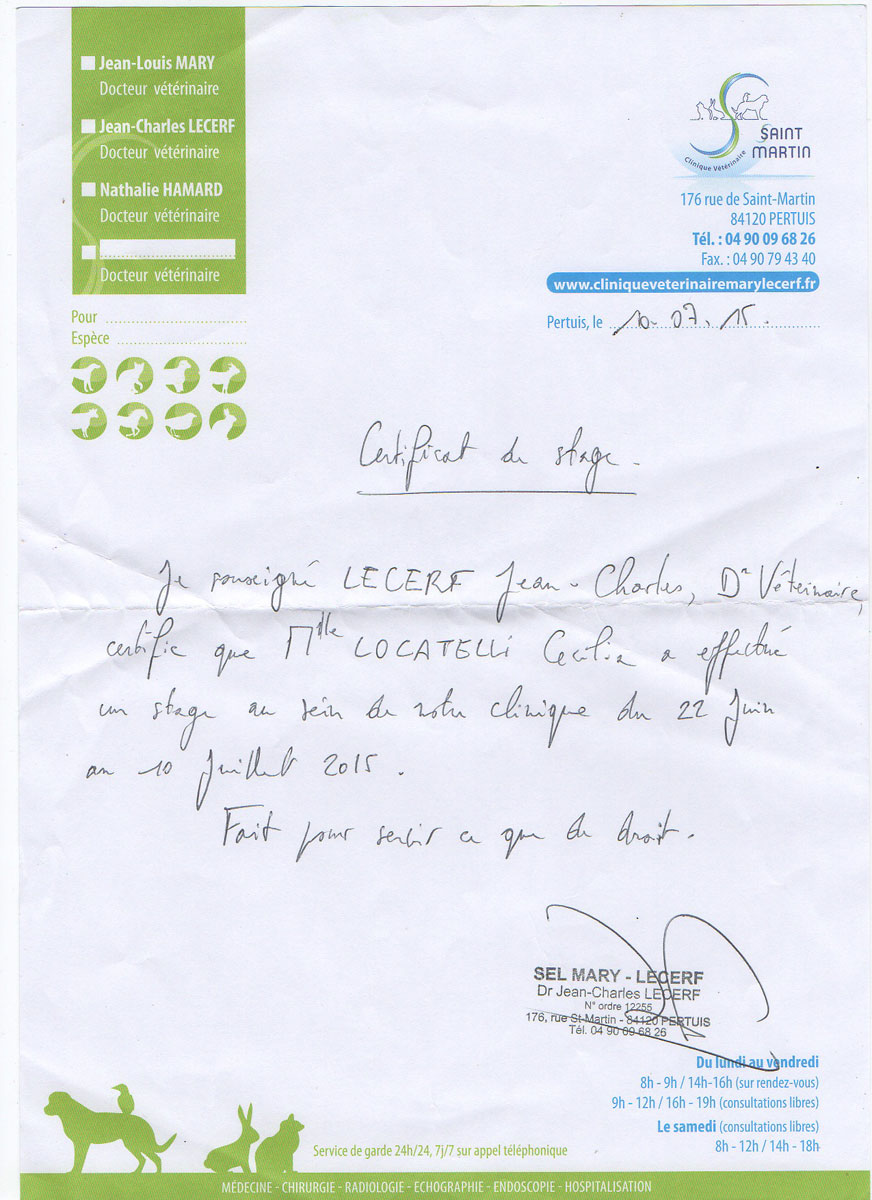 Jean-Louis MARY
Docteur vétérinaire
Jean-Charles LECERF
Docteur vétérinaire
Nathalie HAMARD
Docteur vétérinaire
Docteur vétérinaire
Pour
Espèce
Clinique Vétérinaire
SAINT
MARTIN
176 rue de Saint-Martin
84120 PERTUIS
Tél. : 04 90 09 68 26
Fax. : 04 90 79 43 40
www.cliniqueveterinairemarylecerf.fr
Pertuis, le 10.07.15.
Certificat de stage.
Je soussigné LECERF Jean-Charles, Dr Vétérinaire,
certifie que Mlle LOCATELLI Cecilia a effectué
un stage au sein de notre clinique du 22 Juin
au 10 Juillet 2015.
Fait pour servir ce que de droit.
SEL MARY - LECERF
Dr Jean-Charles LECERF
N° ordre 12255
176, rue St-Martin - 84120 PERTUIS
Tél. 04 90 09 68 26
Du lundi au vendredi
8h - 9h / 14h-16h (sur rendez-vous)
9h - 12h / 16h - 19h (consultations libres)
Le samedi (consultations libres)
8h - 12h / 14h - 18h
Service de garde 24h/24, 7j/7 sur appel téléphonique
MÉDECINE - CHIRURGIE - RADIOLOGIE - ECHOGRAPHIE - ENDOSCOPIE - HOSPITALISATION